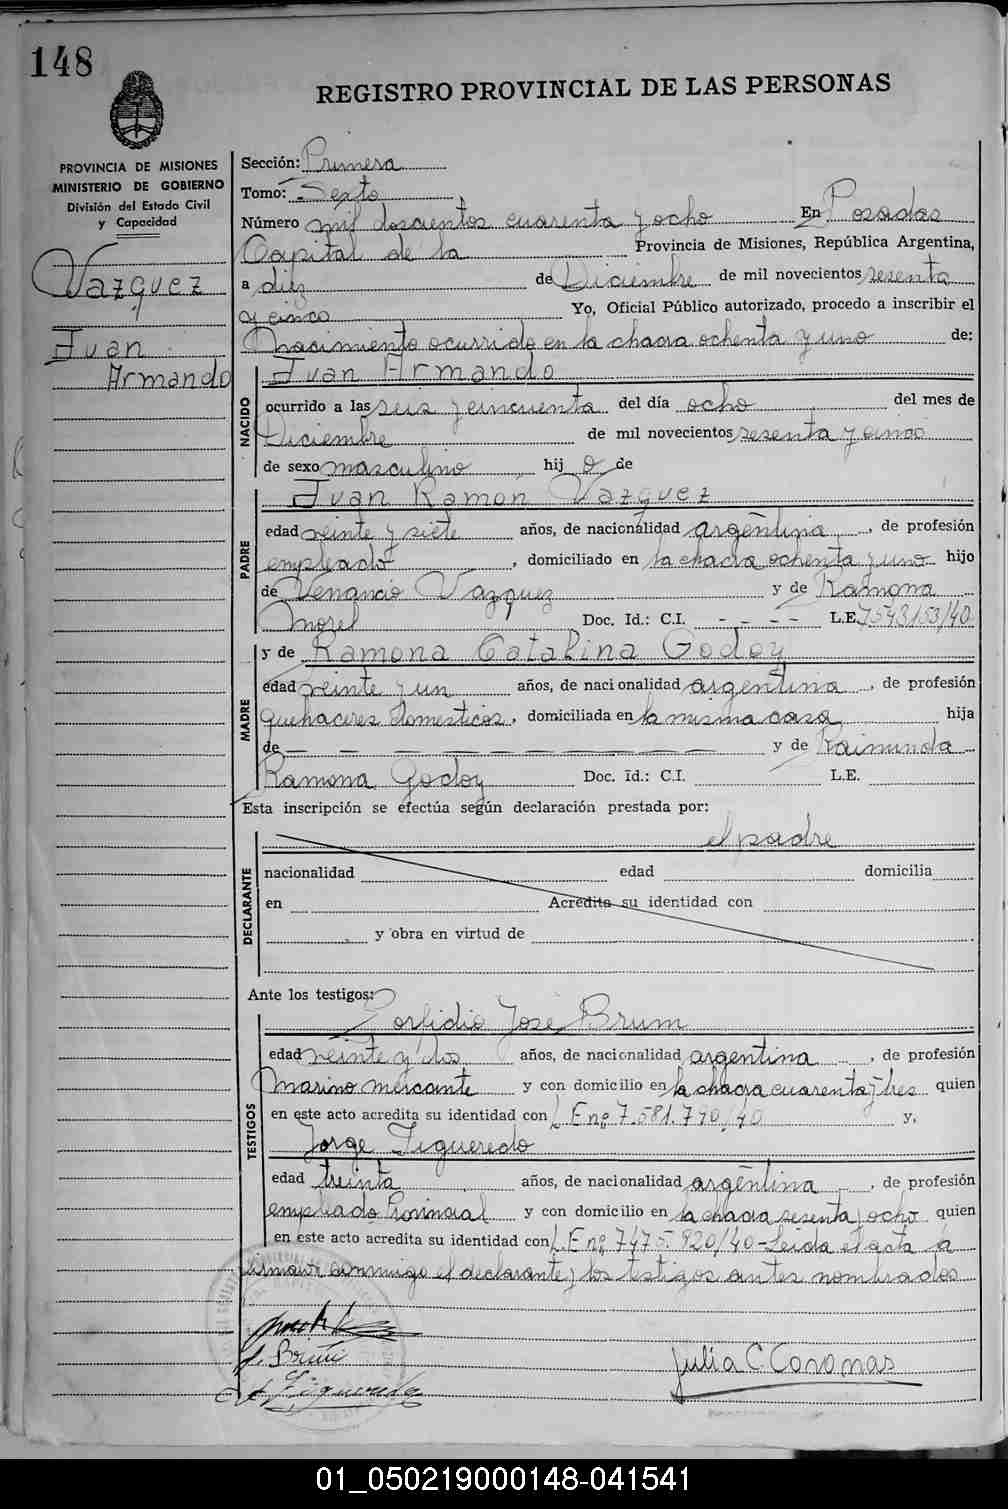 148
REGISTRO PROVINCIAL DE LAS PERSONAS
PROVINCIA DE MISIONES
MINISTERIO DE GOBIERNO
División del Estado Civil
y Capacidad
Vazquez
Juan
Armando
Sección: Primera
Tomo: Sexto
Número mil doscientos cuarenta y ocho En Posadas
Capital de la Provincia de Misiones, República Argentina,
a diez de Diciembre de mil novecientos sesenta
y cinco Yo, Oficial Público autorizado, procedo a inscribir el
Nacimiento ocurrido en la chacra ochenta y uno de:
NACIDO
Juan Armando
ocurrido a las seis y cincuenta del día ocho del mes de
Diciembre de mil novecientos sesenta y cinco
de sexo masculino hij o de
PADRE
Juan Ramon Vazquez
edad veinte y siete años, de nacionalidad argentina, de profesión
empleado, domiciliado en la chacra ochenta y uno hijo
de Venancio Vazquez y de Ramona
Morel Doc. Id.: C.I. - - - - L.E. 7543153/40
MADRE
y de Ramona Catalina Godoy
edad veinte y un años, de nacionalidad argentina, de profesión
quehaceres domesticos, domiciliada en la misma casa hija
de — — — — — — — — — y de Raimunda
Ramona Godoy Doc. Id.: C.I. L.E.
Esta inscripción se efectúa según declaración prestada por:
DECLARANTE
el padre
nacionalidad edad domicilia
en Acredita su identidad con
y obra en virtud de
Ante los testigos:
TESTIGOS
José Brum
edad veinte y dos años, de nacionalidad argentina, de profesión
Marino mercante y con domicilio en la chacra cuarenta y tres quien
en este acto acredita su identidad con L. En° 7.581.790/40 y,
Jorge Figueredo
edad treinta años, de nacionalidad argentina, de profesión
empleado Provincial y con domicilio en la chacra sesenta y ocho quien
en este acto acredita su identidad con L. En° 7475.820/40 - Leida el acta la
firman conmigo el declarante y los testigos antes nombrados
J. Figueredo
Julia C. Coronas
01_050219000148-041541